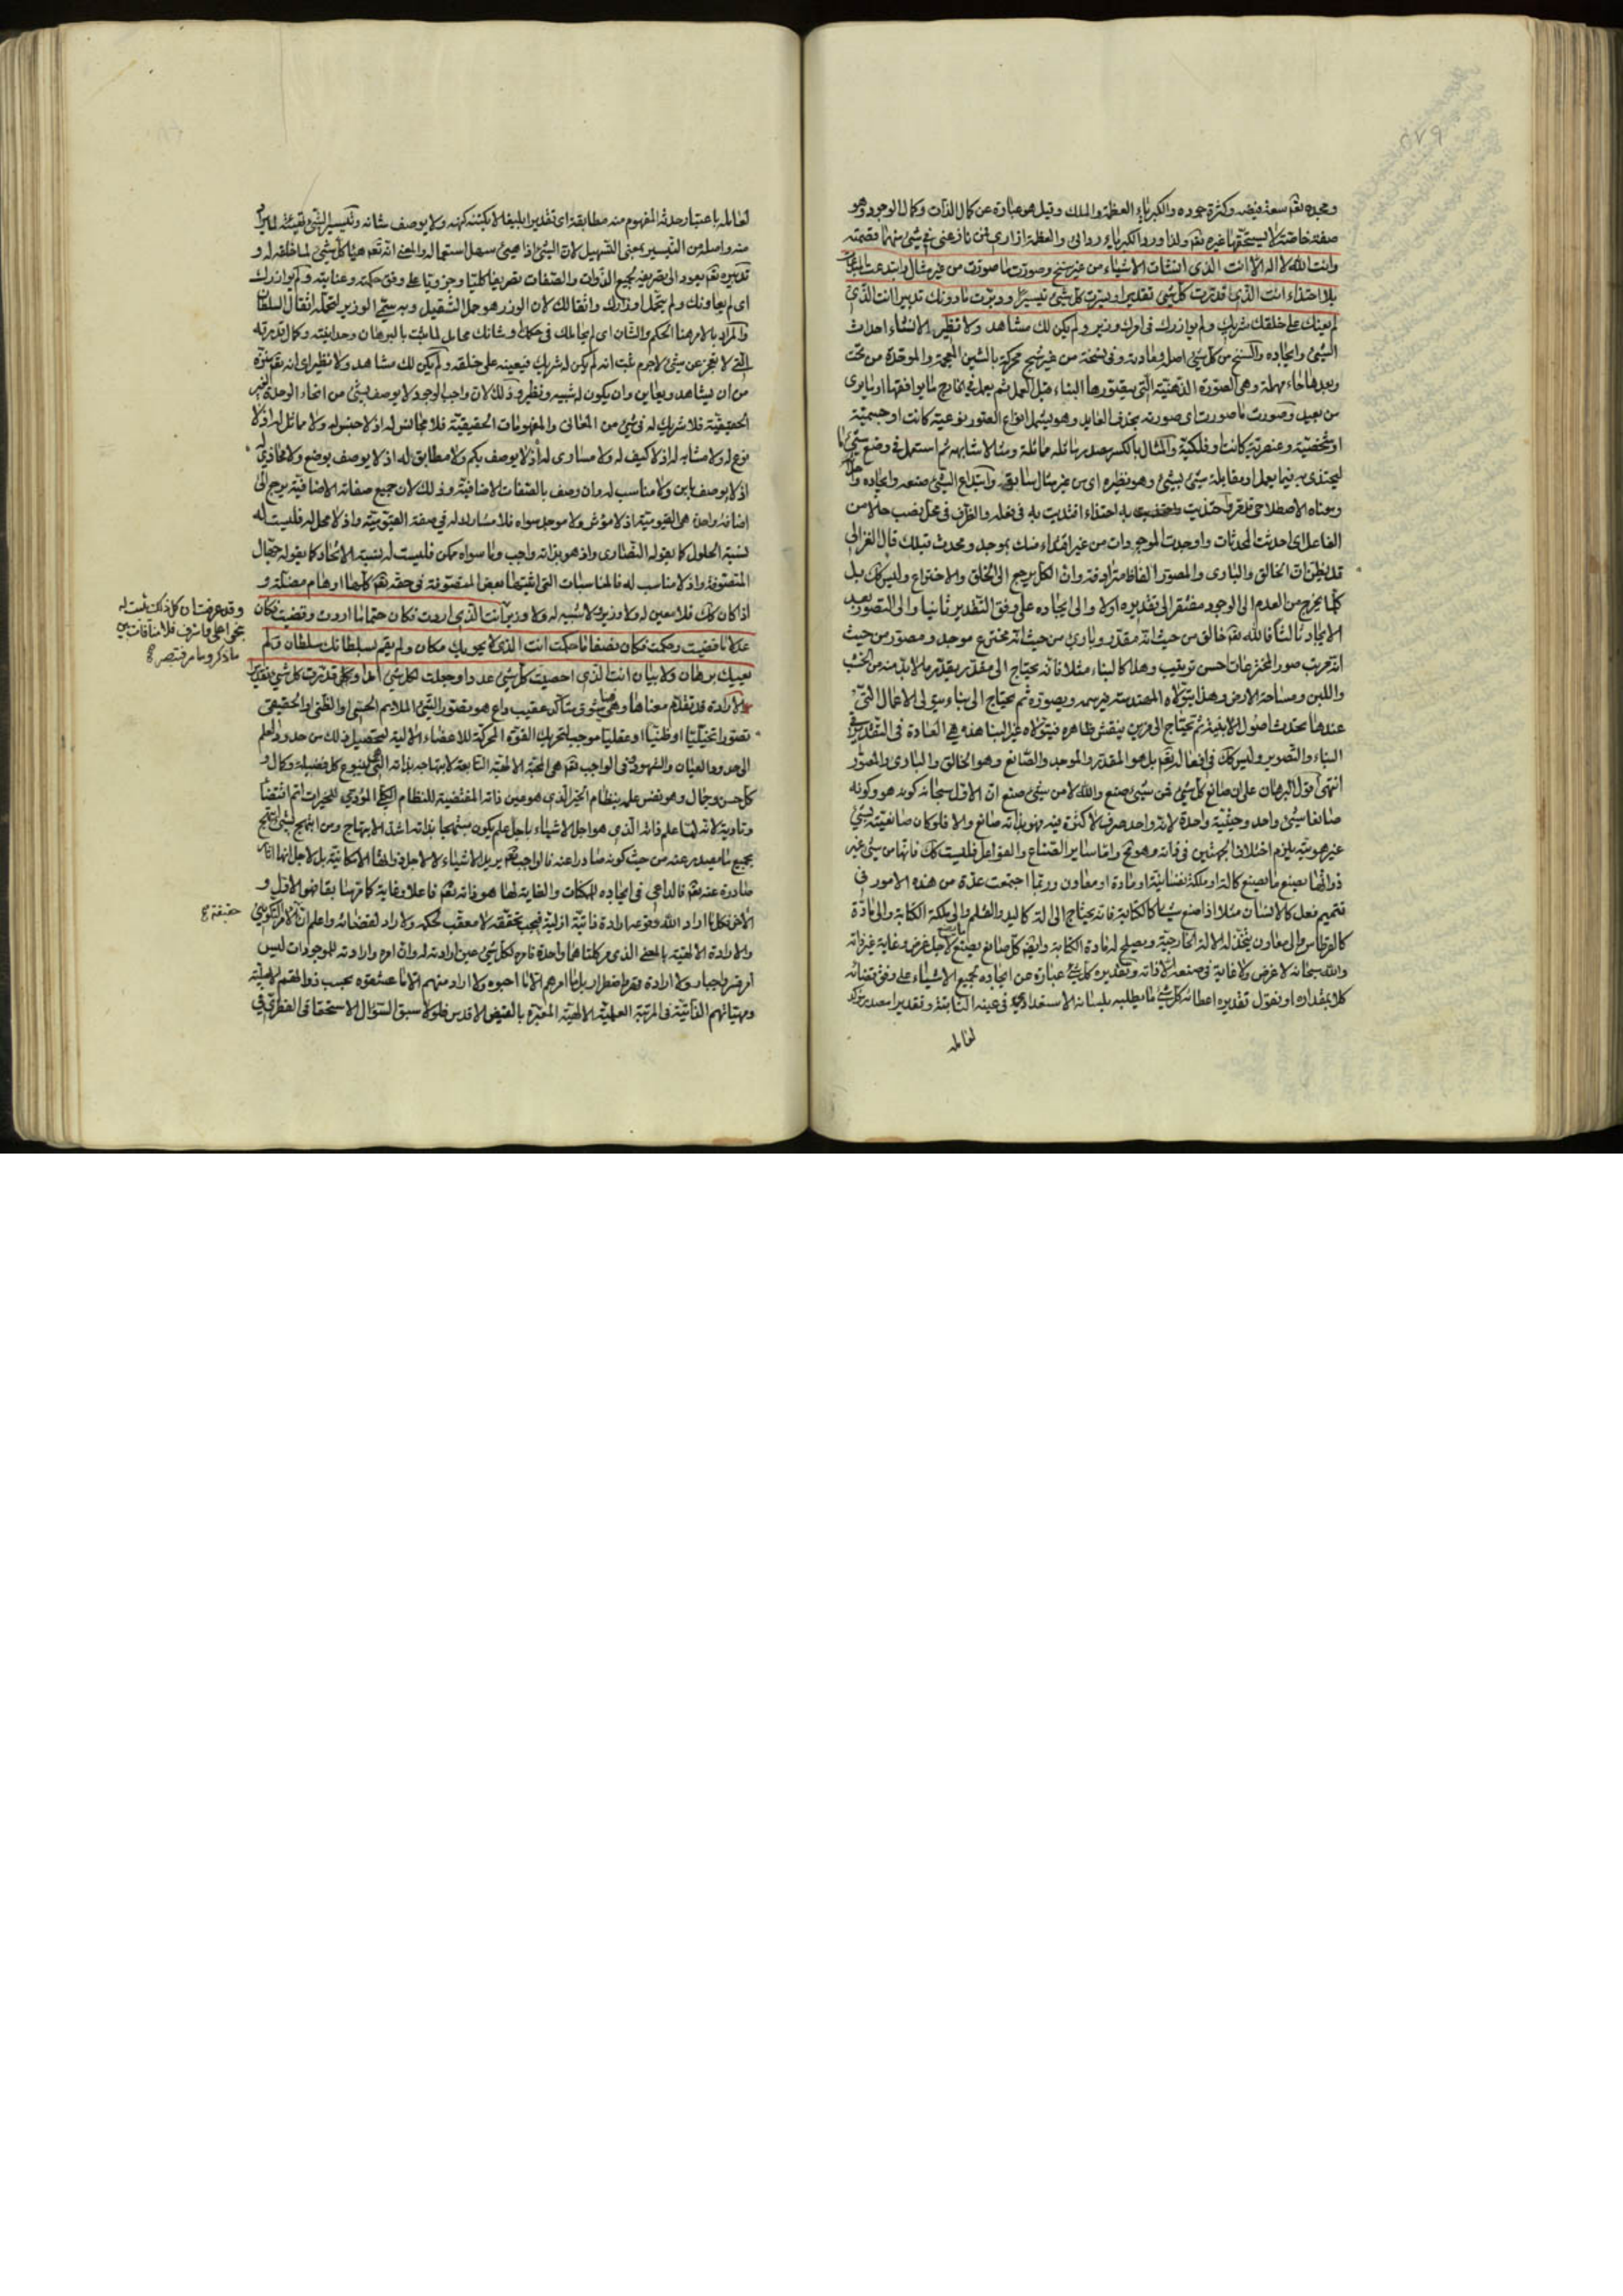 ٥٧٩
ومجده تعم سعة فيضه وكثرة جوده والكبرياء العظمة والملك وقيل هو عبارة عن كمال الذات وكمال الوجود وهو
صفة خاصة لا يستحقها غيره تعم ولذا ورد الكبرياء ردائى والعظمة ازارى فمن نازعنى فى شئ منهما قصمته
وانت الله لا اله الا انت الذى انشات الاشياء من غير سنخ وصورت ما صورت من غير مثال وابتدعت المبتدعات
بلا احتذاء انت الذى قدرت كل شئ تقديرا ويسرت كل شئ تيسيرا ودبرت ما دونك تدبيرا انت الذى
لم يعنك على خلقك شريك ولم يوازرك فى امرك وزير ولم يكن لك مشاهد ولا نظير الانشاء احداث
الشئ وايجاده والسنخ من كل شئ اصله ومادته وفى نسخة من غير شبح محركة بالشين المعجمة والموحدة من تحت
وبعدها حاء مهملة وهى الصورة الذهنية التى يتصورها البناء قبل العمل ثم يعمل فى الخارج ما يوافقها او ما يرى
من بعيد وصورت ما صورت اى صورته بحذف العايد وهو يشمل انواع الصور نوعية كانت او جسمية
او شخصية وعنصرية كانت او فلكية والمثال بالكسر مصدر ماثله مماثلة ومثالا شابهه ثم استعمل فى وضع شئ ما
ليحتذى به فيما يعمل او مقابلة شئ بشئ وهو نظيره اى من غير مثال سابق وابتداع الشئ صنعه وايجاده
ومعناه الاصطلاحى احتذيت به احتذاء اقتديت به فى فعله والظرف فى محل نصب حالا من
الفاعل اى احدثت المحدثات واوجدت الموجودات من غير اقتداء منك بموجد ومحدث قبلك قال الغزالى
قد يظن ان الخالق والبارى والمصور الفاظ مترادفة وان الكل يرجع الى الخلق والاختراع وليس كك بل
كلما يخرج من العدم الى الوجود مفتقر الى تقديره اولا والى ايجاده على وفق التقدير ثانيا والى التصوير بعد
الايجاد ثالثا فالله تعم خالق من حيث انه مقدر وبارئ من حيث انه مخترع موجد ومصور من حيث
انه مرتب صور المخترعات احسن ترتيب وهذا كالبناء مثلا فانه يحتاج الى مقدر يقدر ما لا بد منه من الخشب
واللبن ومساحة الارض وهذا يتولاه المهندس فيرسمه ويصوره ثم يحتاج الى بناء يتولى الاعمال التى
عندها تحدث اصول الابنية ثم يحتاج الى مزين ينقش ظاهره فيتولاه غير البناء هذه هى العادة فى التقدير فى
البناء والتصوير وليس كك فى افعاله تعم بل هو المقدر والموجد والصانع وهو الخالق والبارى والمصور
انتهى اقول البرهان على ان صانع كل شئ فمن شئ صنع والله لا من شئ صنع ان الاول سبحانه كونه هو وكونه
صانعا شئ واحد وحيثية واحدة لانه واحد صرف لا كثرة فيه فهو بذاته صانع والا فلو كان صانعيته بشئ
غير هويته يلزم اختلاف الجهتين فى ذاته وهو مح واما ساير الصناع والفواعل فليست كك فانها من شئ غير
ذواتها يصنع ما يصنع كالة او ملكة نفسانية او مادة او معاون وربما اجتمعت عدة من هذه الامور فى
تتميم فعل كالانسان مثلا اذا صنع شيئا كالكتابة فانه يحتاج الى الة كاليد والقلم والى ملكة الكتابة والى مادة
كالقرطاس والى معاون يتخذ له الالة الخارجية ويصلح له مادة الكتابة وايضا كل صانع يصنع لاجل غرض وغاية غير ذاته
والله سبحانه لا غرض ولا غاية فى صنعه الا ذاته وتقديره كل شئ عبارة عن ايجاده لجميع الاشياء على وفق قضائه
كلا بمقداره او نقول تقديره اعطائه كل شئ ما يطلبه بلسانه الاستعدادى فى عينه الثابتة وتقديرا مصدر مؤكد
لعامله
لعامله باعتبار حدثه المفهوم منه مطابقة اى تقديرا بليغا لا يكتنه كنهه ولا يوصف شانه وتيسير الشئ تهيئته لما يراد
منه واصله من التيسير بمعنى التسهيل لان الشئ اذا هيئ سهل استعماله والمعنى انه تعم هيأ كل شئ لما خلقه له و
تدبيره تعم يعود الى تصريفه لجميع الذوات والصفات تصريفا كليا وجزويا على وفق حكمته وعنايته ولم يوازرك
اى لم يعاونك ولم يتحمل اوزارك واثقالك لان الوزر هو حمل الثقيل وبه سمى الوزير لتحمله اثقال السلطان
والمراد بالامر هنا الحكم والشان اى لم يحاملك فى حكمك وشانك محامل لما ثبت بالبرهان وحدانيته وكمال قدرته
التى لا تعجز عن شئ لا جرم ثبت انه لم يكن له شريك فيعينه على خلقه ولم يكن لك مشاهد ولا نظير اى انه تعم منزه
من ان يشاهد ويعاين وان يكون له شبيه ونظير وذلك لان واجب الوجود لا يوصف بشئ من انحاء الوحدة الغير
الحقيقية فلا شريك له فى شئ من المعانى والمفهومات الحقيقية فلا مجانس له اذ لا جنس له ولا مماثل له اذ لا
نوع له ولا مشابه له اذ لا كيف له ولا مساوى له اذ لا يوصف بكم ولا مطابق له اذ لا يوصف بوضع ولا محاذى له
اذ لا يوصف باين ولا مناسب له وان وصف بالصفات الاضافية وذلك لان جميع صفاته الاضافية يرجع الى
اضافة واحدة هى القيومية اذ لا مؤثر ولا موجد سواه فلا مشارك له فى صفة القيومية واذ لا محل له فليست له
نسبة الحلول كما يقوله النصارى واذ هو بذاته واجب وما سواه ممكن فليست له نسبة الاتحاد كما يقوله جهال
المتصوفة واذ لا مناسب له فالمناسبات التى اثبتها بعض المتصوفة فى حقه تعم كلها اوهام مضلة و
اذا كان كك فلا معين له ولا وزير ولا شبيه له ولا وزير انت الذى اردت فكان حتما ما اردت وقضيت فكان
عدلا ما قضيت وحكمت فكان نصفا ما حكمت انت الذى لا يحويك مكان ولم يقم لسلطانك سلطان ولم
يعييك برهان ولا بيان انت الذى احصيت كل شئ عددا وجعلت لكل شئ امدا وقدرت كل شئ تقديرا
الارادة قد تقدم معناها وهى فينا شوق متاكد عقيب داع هو تصور الشئ الملايم الحسى او الظنى او الحقيقى
تصورا تخيليا او ظنيا او عقليا موجب لتحريك القوة المحركة للاعضاء الالية لتحصيل ذلك من حدود العلم
الى حدود العيان والشهود وفى الواجب تعم هى المحبة الالهية التابعة لابتهاجه بذاته التى هى ينبوع كل فضيلة وكمال و
كل حسن وجمال وهو نفس علمه بنظام الخير الذى هو عين ذاته المقتضية للنظام الكلى المؤدى للخيرات اتم اقتضاء
وتادية لانه لما علم ذاته الذى هو اجل الاشياء باجل علم يكون مبتهجا بذاته اشد الابتهاج ومن ابتهج بشئ ابتهج
بجميع ما يصدر عنه من حيث كونه صادرا عنه فالواجب تعم يريد الاشياء لا لاجل ذواتها الامكانية بل لاجل انها اثار
صادرة عنه تعم فالداعى فى ايجاده للممكنات والغاية لها هو ذاته تعم فاعلا وغاية كما هما بقاض الاول و
الاخر فكلما اراد الله وقوعه ارادة ذاتية ازلية فيجب تحققه لا معقب لحكمه ولا راد لقضائه واعلم ان الامر التكوينى
والارادة الالهية بالمعنى الذى مر كلتاهما واحدة فامره لكل شئ عين ارادته له وان امره وارادته للموجودات ليس
امر قسر واجبار ولا ارادة قهر واضطرار بل ما امرهم الا ما احبوه ولا اراد منهم الا ما عشقوه بحسب ذواتهم الاصلية
ومهياتهم الذاتية فى المرتبة العلمية الالهية المعبرة بالفيض الاقدس فلولا سبق السؤال الاستحقاقى الفطرى فى
وقد عرفت ان كل ذلك ثبت له
بنحو اعلى واشرف فلا منافات بين
ما ذكر وما مر فتبصر
حقيقة